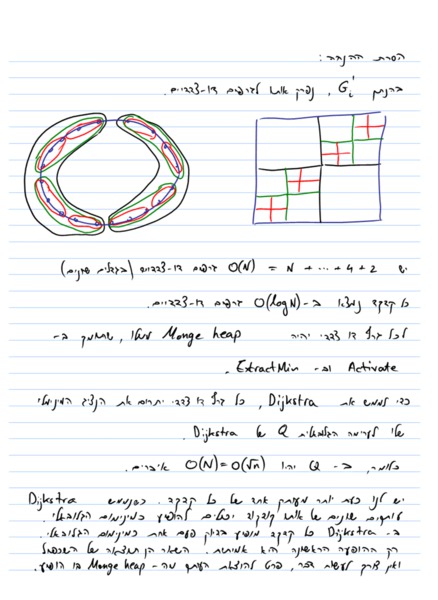 הסרת ההנחה:
בהינתן G'i, נפרק אותו לגרפים דו-צדדיים.
יש O(N) = N + ... + 4 + 2 גרפים דו-צדדיים (בגדלים שונים)
כל קדקד נמצא ב- O(logN) גרפים דו-צדדיים.
לכל גרף דו צדדי יהיה Monge heap משלו, שתומך ב-
Activate וב- ExtractMin.
כדי לממש את Dijkstra, כל גרף דו צדדי יתרום את הנציג המינימלי
שלו לערימה הגלובלית Q של Dijkstra.
כלומר, ב- Q יהיו O(N)=O(√n) איברים.
יש לנו כעת יותר מעותק אחד של כל קדקד. כשנממש Dijkstra
עותקים שונים של אותו קדקוד יכולים להופיע כמינימום הגלובאלי.
ב- Dijkstra כל קדקד מופיע בדיוק פעם אחת כמינימום הגלובאלי.
רק ההופעה הראשונה היא אמיתית. השאר הן תוצאה של השכפול
ואין צורך לעשות דבר, פרט להוצאת העותק מה- Monge heap בו הופיע.